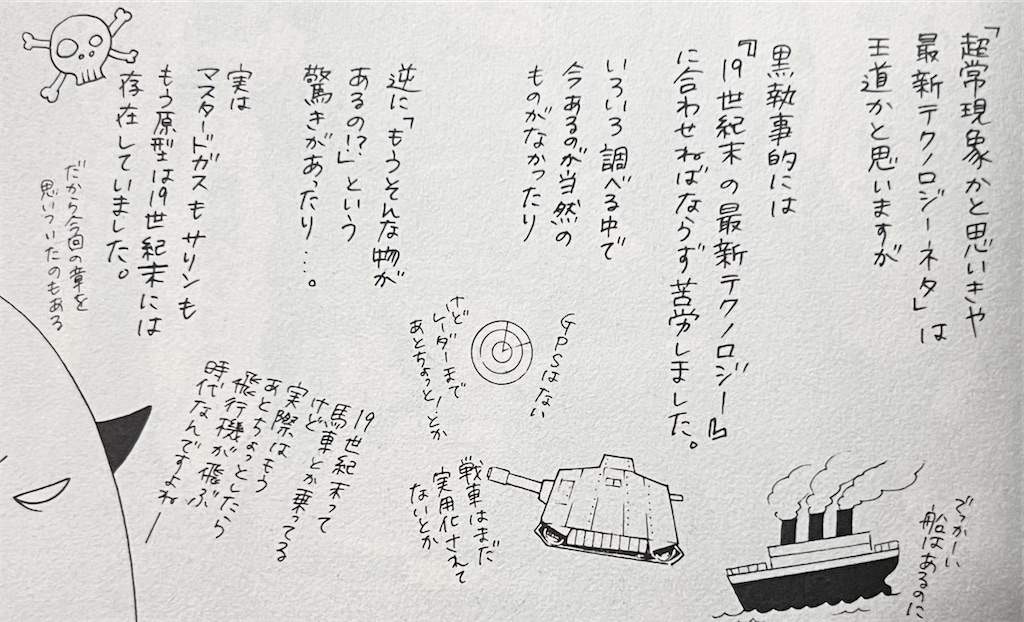 「超常現象かと思いきや
最新テクノロジーネタ」は
王道かと思いますが
黒執事的には
『19世紀末の最新テクノロジー』
に合わせねばならず苦労しました。
いろいろ調べる中で
今あるのが当然の
ものがなかったり
逆に「もうそんな物が
あるの!?」という
驚きがあったり…。
実は
マスタードガスもサリンも
もう原型は19世紀末には
存在していました。
だから今回の章を
思いついたのもある
GPSはない
けど
レーダーまで
あとちょっと!とか
でっかーい
船はあるのに
戦車はまだ
実用化されて
ないとか
19世紀末って
馬車とか乗ってる
けど
実際はもう
あとちょっとしたら
飛行機が飛ぶ
時代なんですよねー